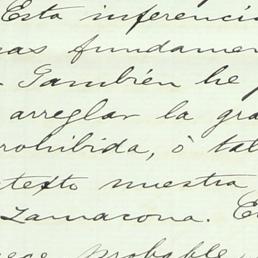 Esta inferenci
as fundamen
También he p
arreglar la gra
rohibida, ò tal
texto nuestra
Zamacona. E
probable